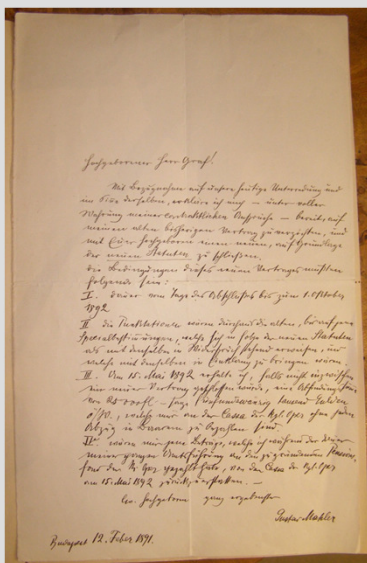 Hochgeborener Herr Graf!
Mit Bezugnahme auf unsere heutige Unterredung und
im Sinne derselben, erkläre ich mich – unter voller
Wahrung meiner contraktlichen Ansprüche – bereit, auf
meinen alten bisherigen Vertrag zu verzichten, und
mit Euer Hochgeboren einen neuen, auf Grundlage
der neuen Statuten zu schließen.
Die Bedingungen dieses neuen Vertrages müßten
folgende sein:
I. Dauer vom Tage des Abschlußes bis zum 1. Oktober
1892
II die wären durchaus die alten, bis auf jene
welche sich in Folge der neuen Statuten
als mit denselben in erweisen, und
welche mit denselben in zu bringen wären.
III. Am 15. Mai 1892 erhalte ich, falls nicht inzwischen
ein neuer Vertrag geschlossen würde, eine Abfindung
von fl – sage tausend Gulden
ö/W., welche mir an der Cassa der kgl. Oper ohne jeden
Abzug in zu bezahlen sind.
IV wären mir jene Beträge, welche ich während der Dauer
meiner ganzen Amtsführung an den zu gründenden
fond der kgl. Oper , von der Cassa der kgl. Oper
am 15. Mai 1892 zurückzuerstatten. –
Euer Hochgeboren ganz ergebenster
Gustav Mahler
Budapest 12. Feber 1891.